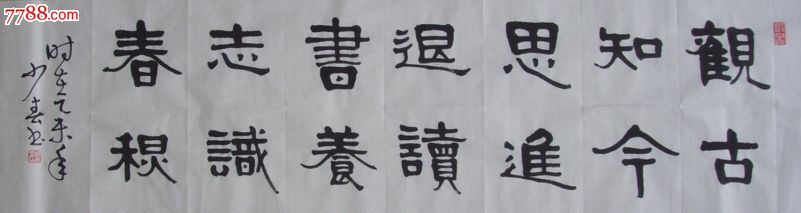 7788.com
觀古
知今
思進
退讀
書養
志識
春秋
时在乙未年
少春书